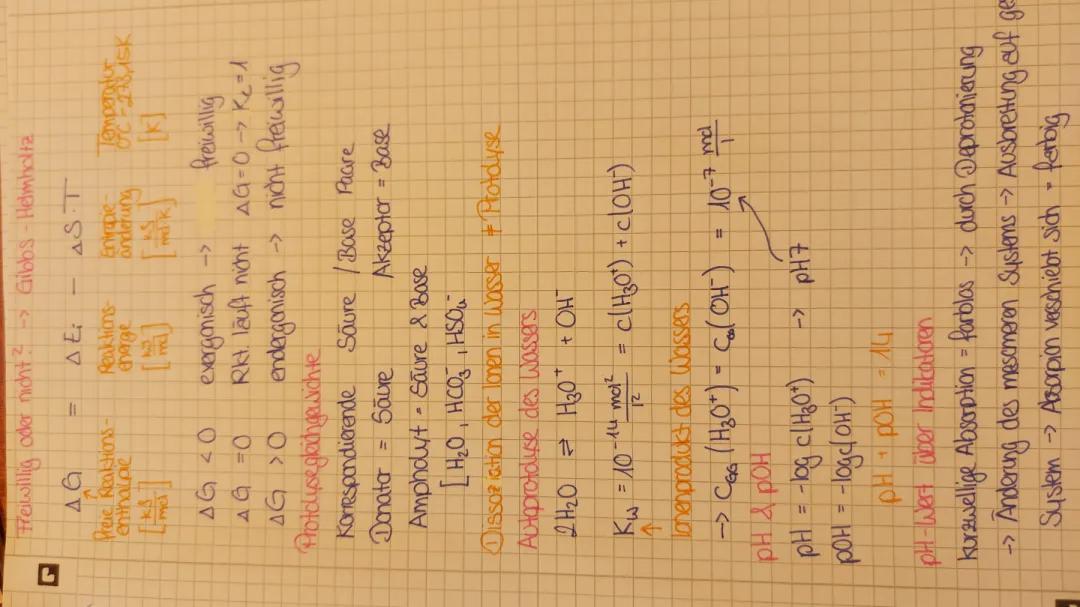 Freiwillig oder nicht? -> Gibbs-Helmholtz
ΔG = ΔEi - ΔS·T
Freie Reaktions-enthalpie [kJ/mol] Reaktions-energie [kJ/mol] Entropie-änderung [kJ/mol·K] Temperatur [K]
ΔG < 0 exergonisch -> freiwillig
ΔG = 0 Rkt. läuft nicht ΔG = 0 -> Kc = 1
ΔG > 0 endergonisch -> nicht freiwillig
Protolysegleichgewichte
Korrespondierende Säure / Base Paare
Donator = Säure Akzeptor = Base
Ampholyt = Säure & Base
[H2O, HCO3-, HSO4-]
① Dissoziation der Ionen in Wasser ≠ Protolyse
Autoprotolyse des Wassers
2H2O ⇌ H3O+ + OH-
Kw = 10^-14 mol²/l² = c(H3O+) + c(OH-)
Ionenprodukt des Wassers
-> cGG (H3O+) = cGG (OH-) = 10^-7 mol/l
pH & pOH
pH = -log c(H3O+) -> pH7
pOH = -log c(OH-)
pH + pOH = 14
pH-Wert über Indikatoren
kurzwellige Absorption = farblos -> durch Deprotonierung
-> Änderung des mesomeren Systems -> Ausbreitung auf
System -> Absorption verschiebt sich = farbig